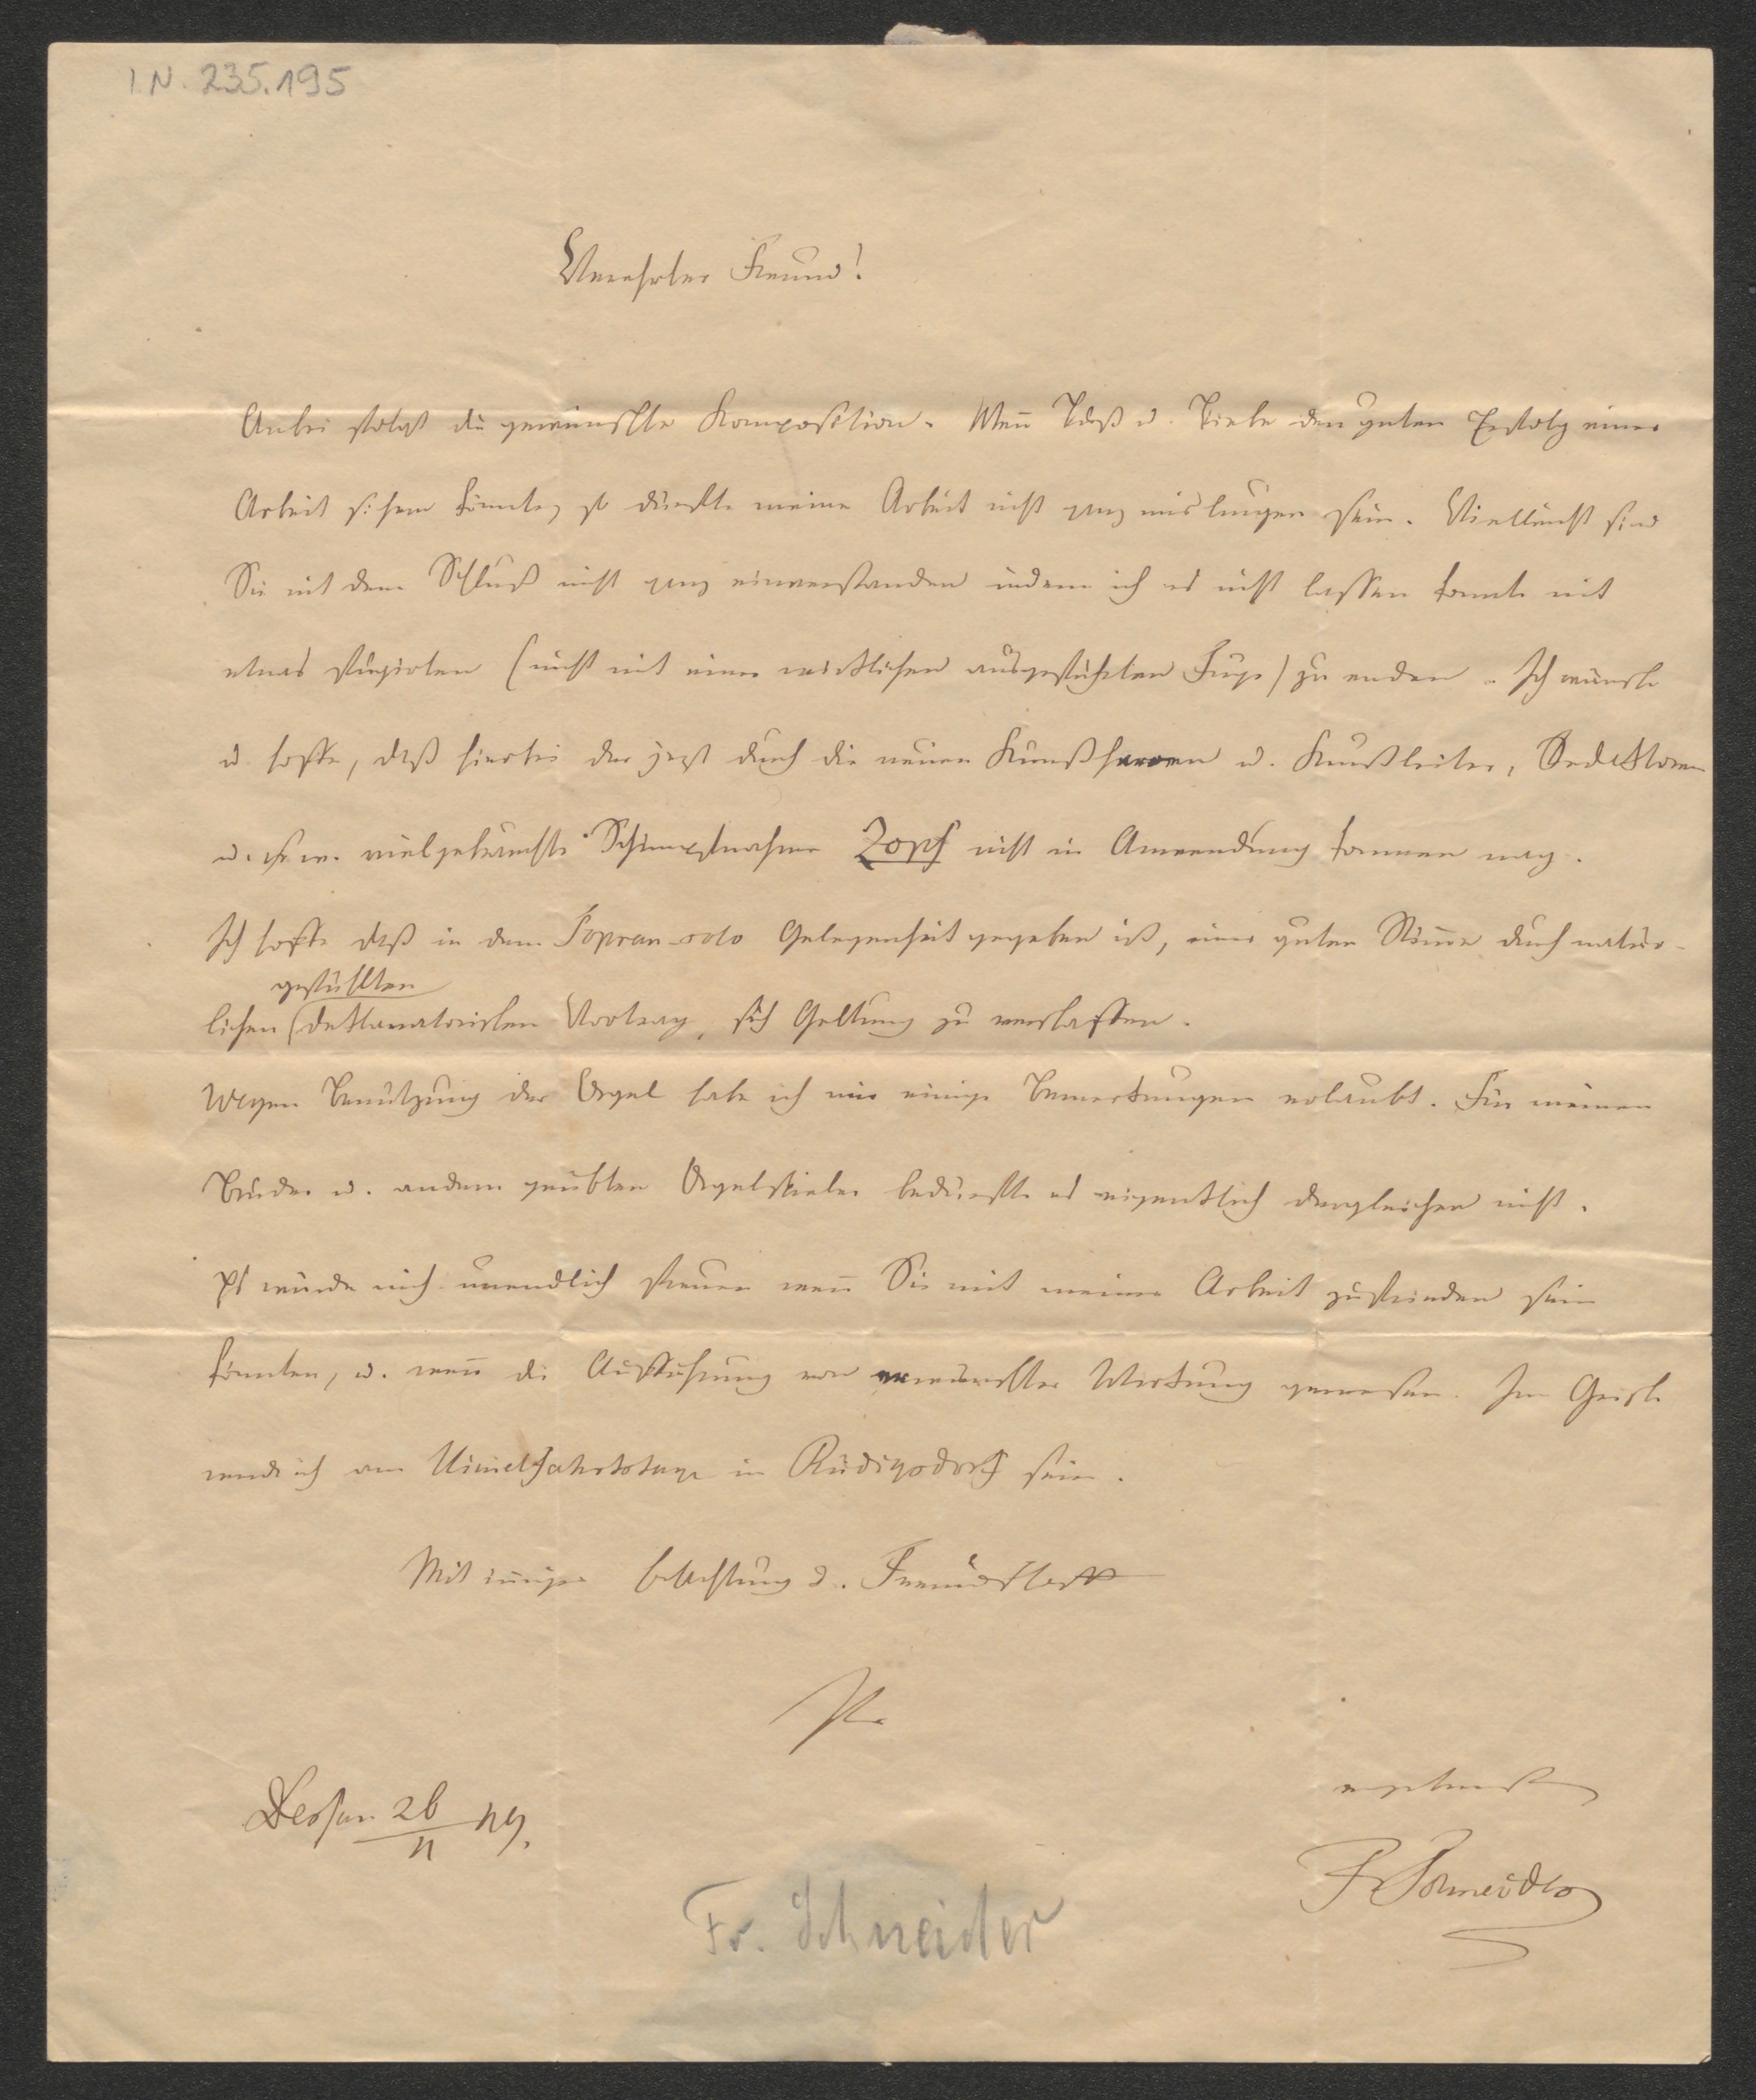 I.N. 235.195
Verehrter Freund!
Anbei folgt die gewünschte Komposition. Wenn Lust u. Liebe den guten Erfolg einer
Arbeit sichern könnte, so dürfte meine Arbeit nicht ganz mislungen sein. Vielleicht sind
Sie mit dem Schluß nicht ganz einverstanden indem ich es nicht lassen konnte mit
etwas fugirten (nicht mit einer wirklichen ausgeführten Fuge) zu enden. Ich wünsche
u hoffe, daß hierbei der jezt durch die neuen Kunstheroen u. Kunstleiter, Redakteure
u. s. w. vielgebrauchte Schimpfnahme Zopf nicht in Anwendung kommen mag.
Ich hoffe daß in dem Sopran-solo Gelegenheit gegeben ist, einer guten Stimme durch natür-
gefühlten
lichen deklamatorischen Vortrag, sich Geltung zu verschaffen.
Wegen Benutzung der Orgel habe ich mir einige Bemerkungen erlaubt. Für meinen
Bruder u. andern geübten Orgelspieler bedürfte es eigentlich dergleichen nicht.
Es würde mich unendlich freuen wenn Sie mit meiner Arbeit zufrieden sein
könnten, u. wenn die Aufführung von erwünschter Wirkung gewesen. Im Geiste
werde ich am Himelfahrtstage in Rüdigsdorf sein.
Mit inniger Hochachtung u. Freundschaft
Ihr
Dessau 26/4 49.
ergebenster
Fr Schneider
Fr. Schneider